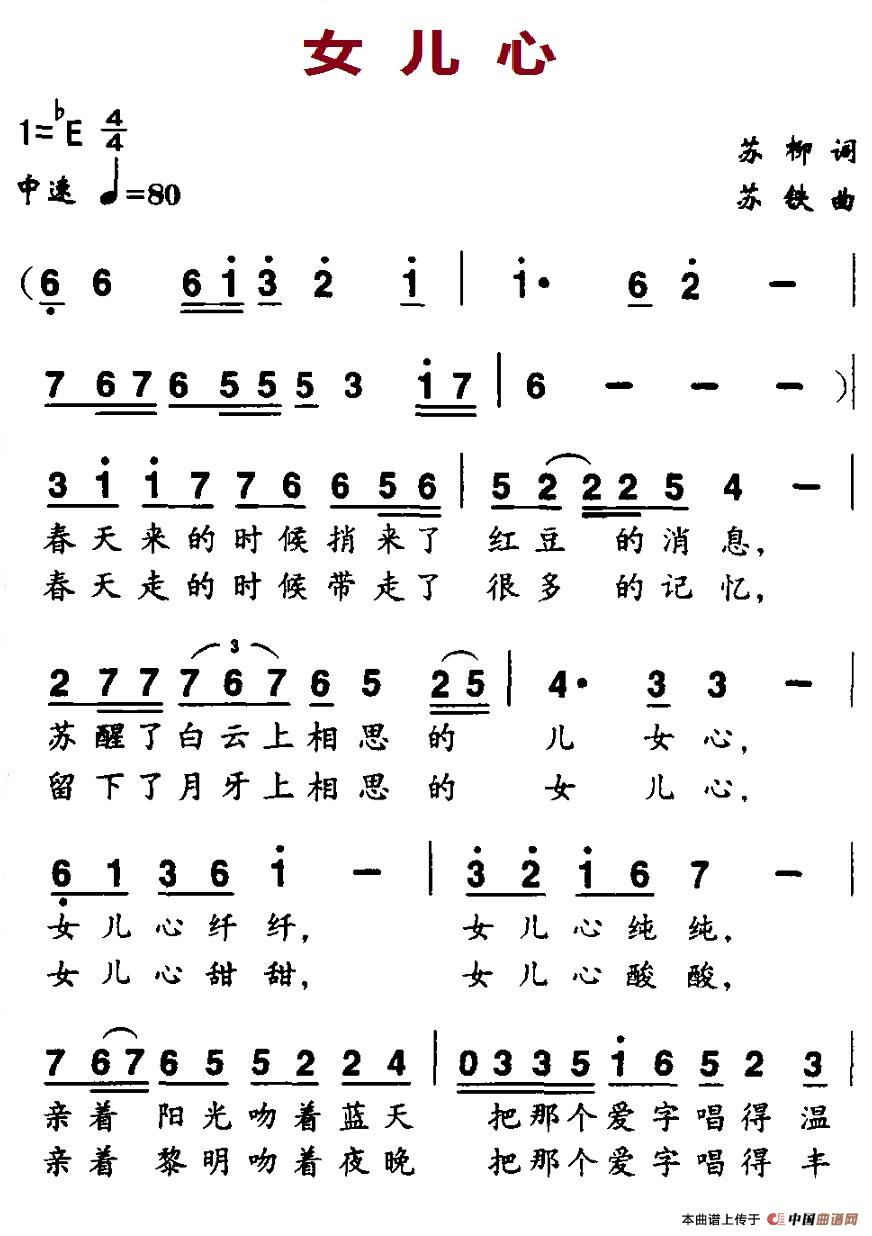 女儿心
1=♭E 4/4
苏柳词
中速 ♩=80
苏铁曲
(6 6 6 1 3 2 1 | 1· 6 2 – |
7 6 7 6 5 5 5 3 1 7 | 6 – – – )|
3 1 1 7 7 6 6 5 6 | 5 2 2 2 5 4 – |
春天来的时候捎来了 红豆的消息,
春天走的时候带走了 很多的记忆,
2 7 7 7 6 7 6 5 2 5 | 4· 3 3 – |
3
苏醒了白云上相思的 儿女心,
留下了月牙上相思的 女儿心.
6 1 3 6 1 – | 3 2 1 6 7 – |
女儿心纤纤, 女儿心纯纯,
女儿心甜甜, 女儿心酸酸,
7 6 7 6 5 5 2 2 4 | 0 3 3 5 1 6 5 2 3 |
亲着阳光吻着蓝天 把那个爱字唱得温
亲着黎明吻着夜晚 把那个爱字唱得丰
本曲谱上传于 中国曲谱网